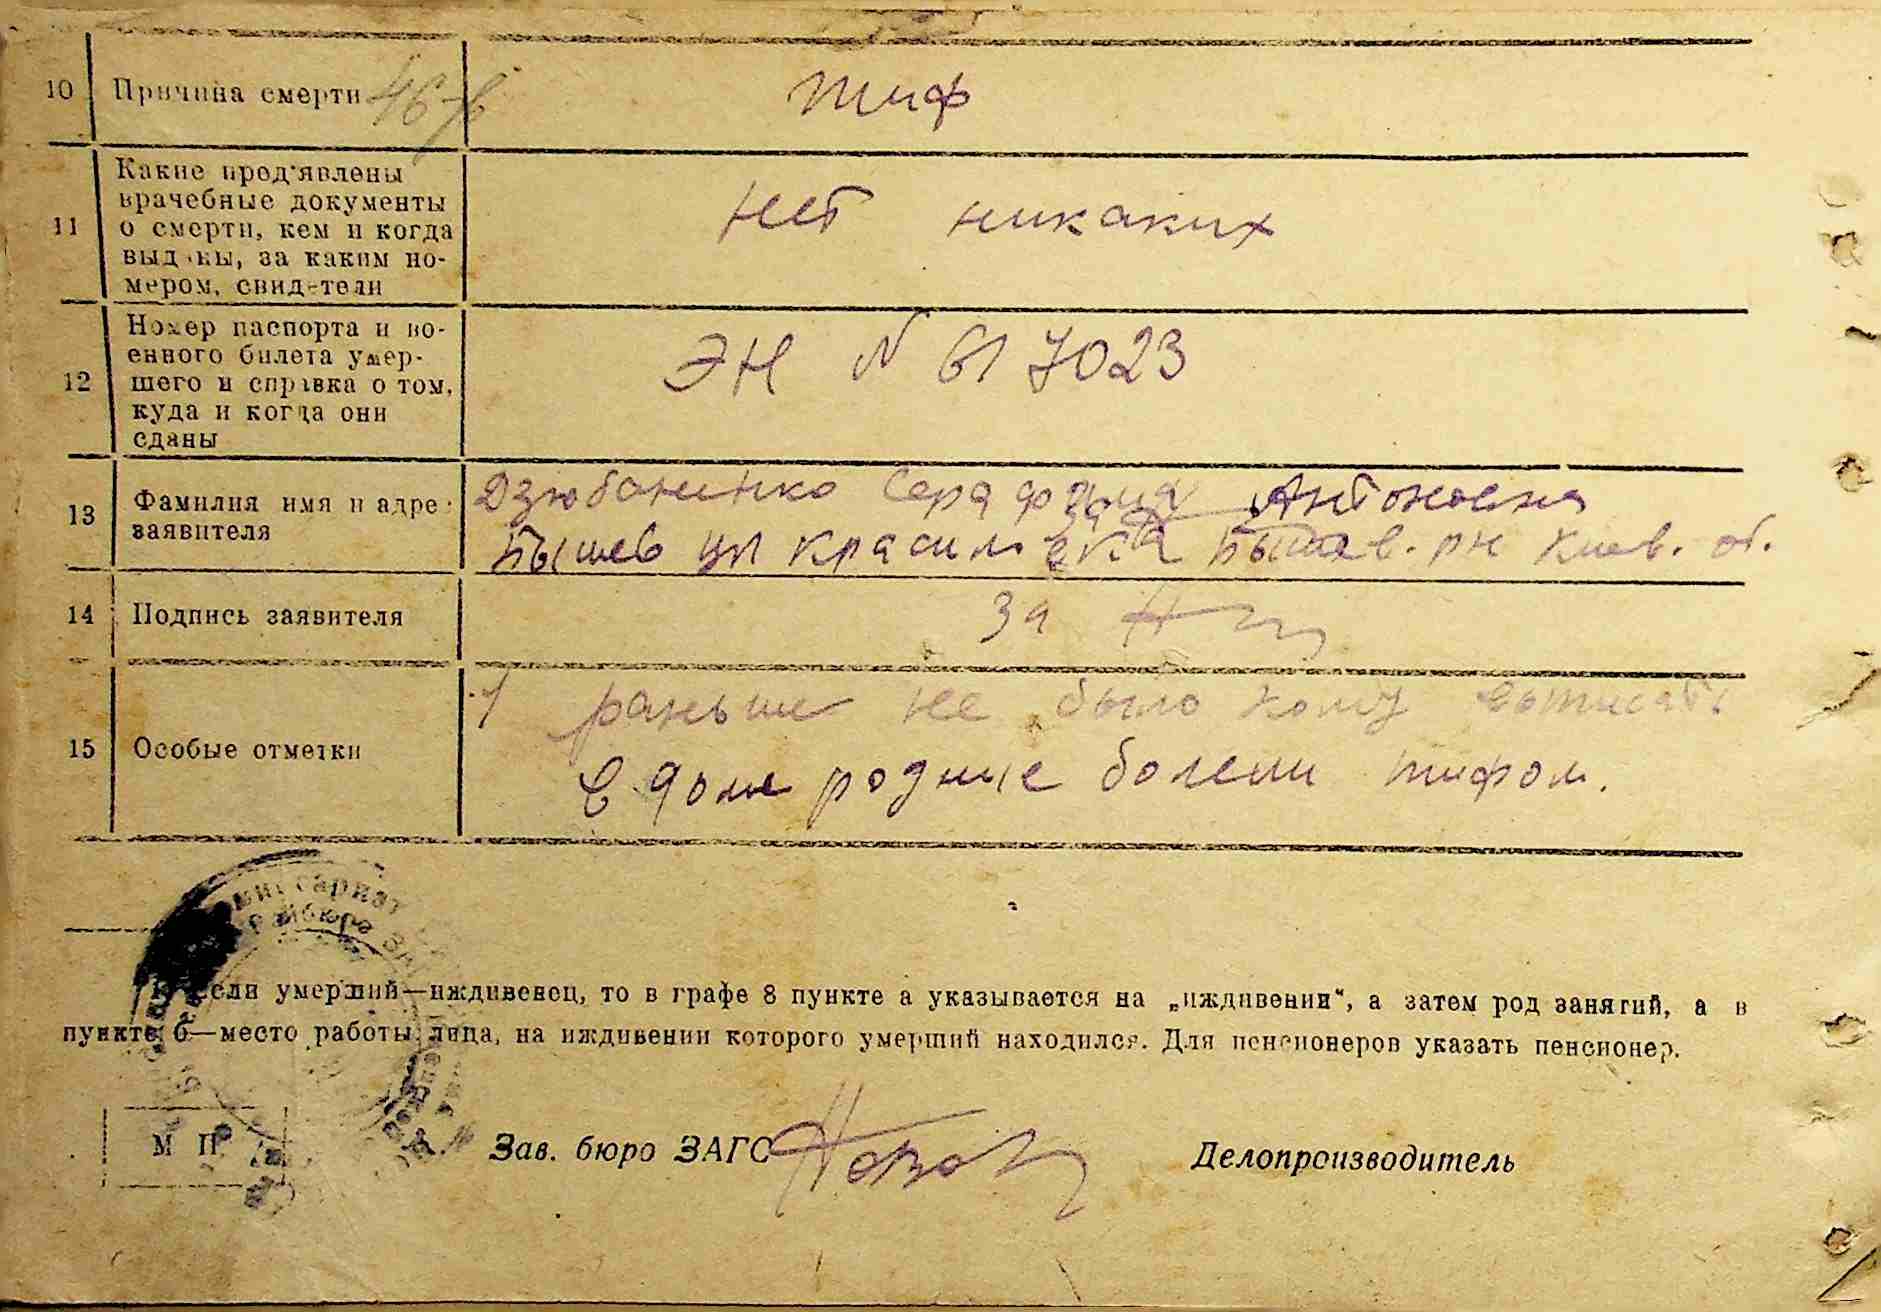 10 Причина смерти тиф
11 Какие пред'явлены
врачебные документы
о смерти, кем и когда нет никаких
выд ны, за каким но-
мером, свидетели
12 Номер паспорта и во-
енного билета умер-
шего и справка о том, ЭН № 617023
куда и когда они
сданы
13 Фамилия имя и адрес Дзюбаненко Серафима Антоновна
заявителя Бышев ул красиловка Бышев. рн Киев. об.
14 Подпись заявителя За
1 раньше не было кому выписать
15 Особые отметки
в доме родные болели тифом.
миссариат
райбюро ЗАГС
Если умерший—иждивенец, то в графе 8 пункте а указывается на „иждивении“, а затем род занятий, а в
пункте б—место работы лица, на иждивении которого умерший находился. Для пенсионеров указать пенсионер.
М П Зав. бюро ЗАГС Делопроизводитель